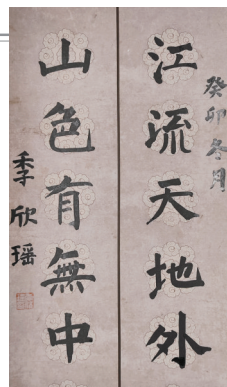 癸卯冬月
江流天地外
山色有無中
季欣瑶